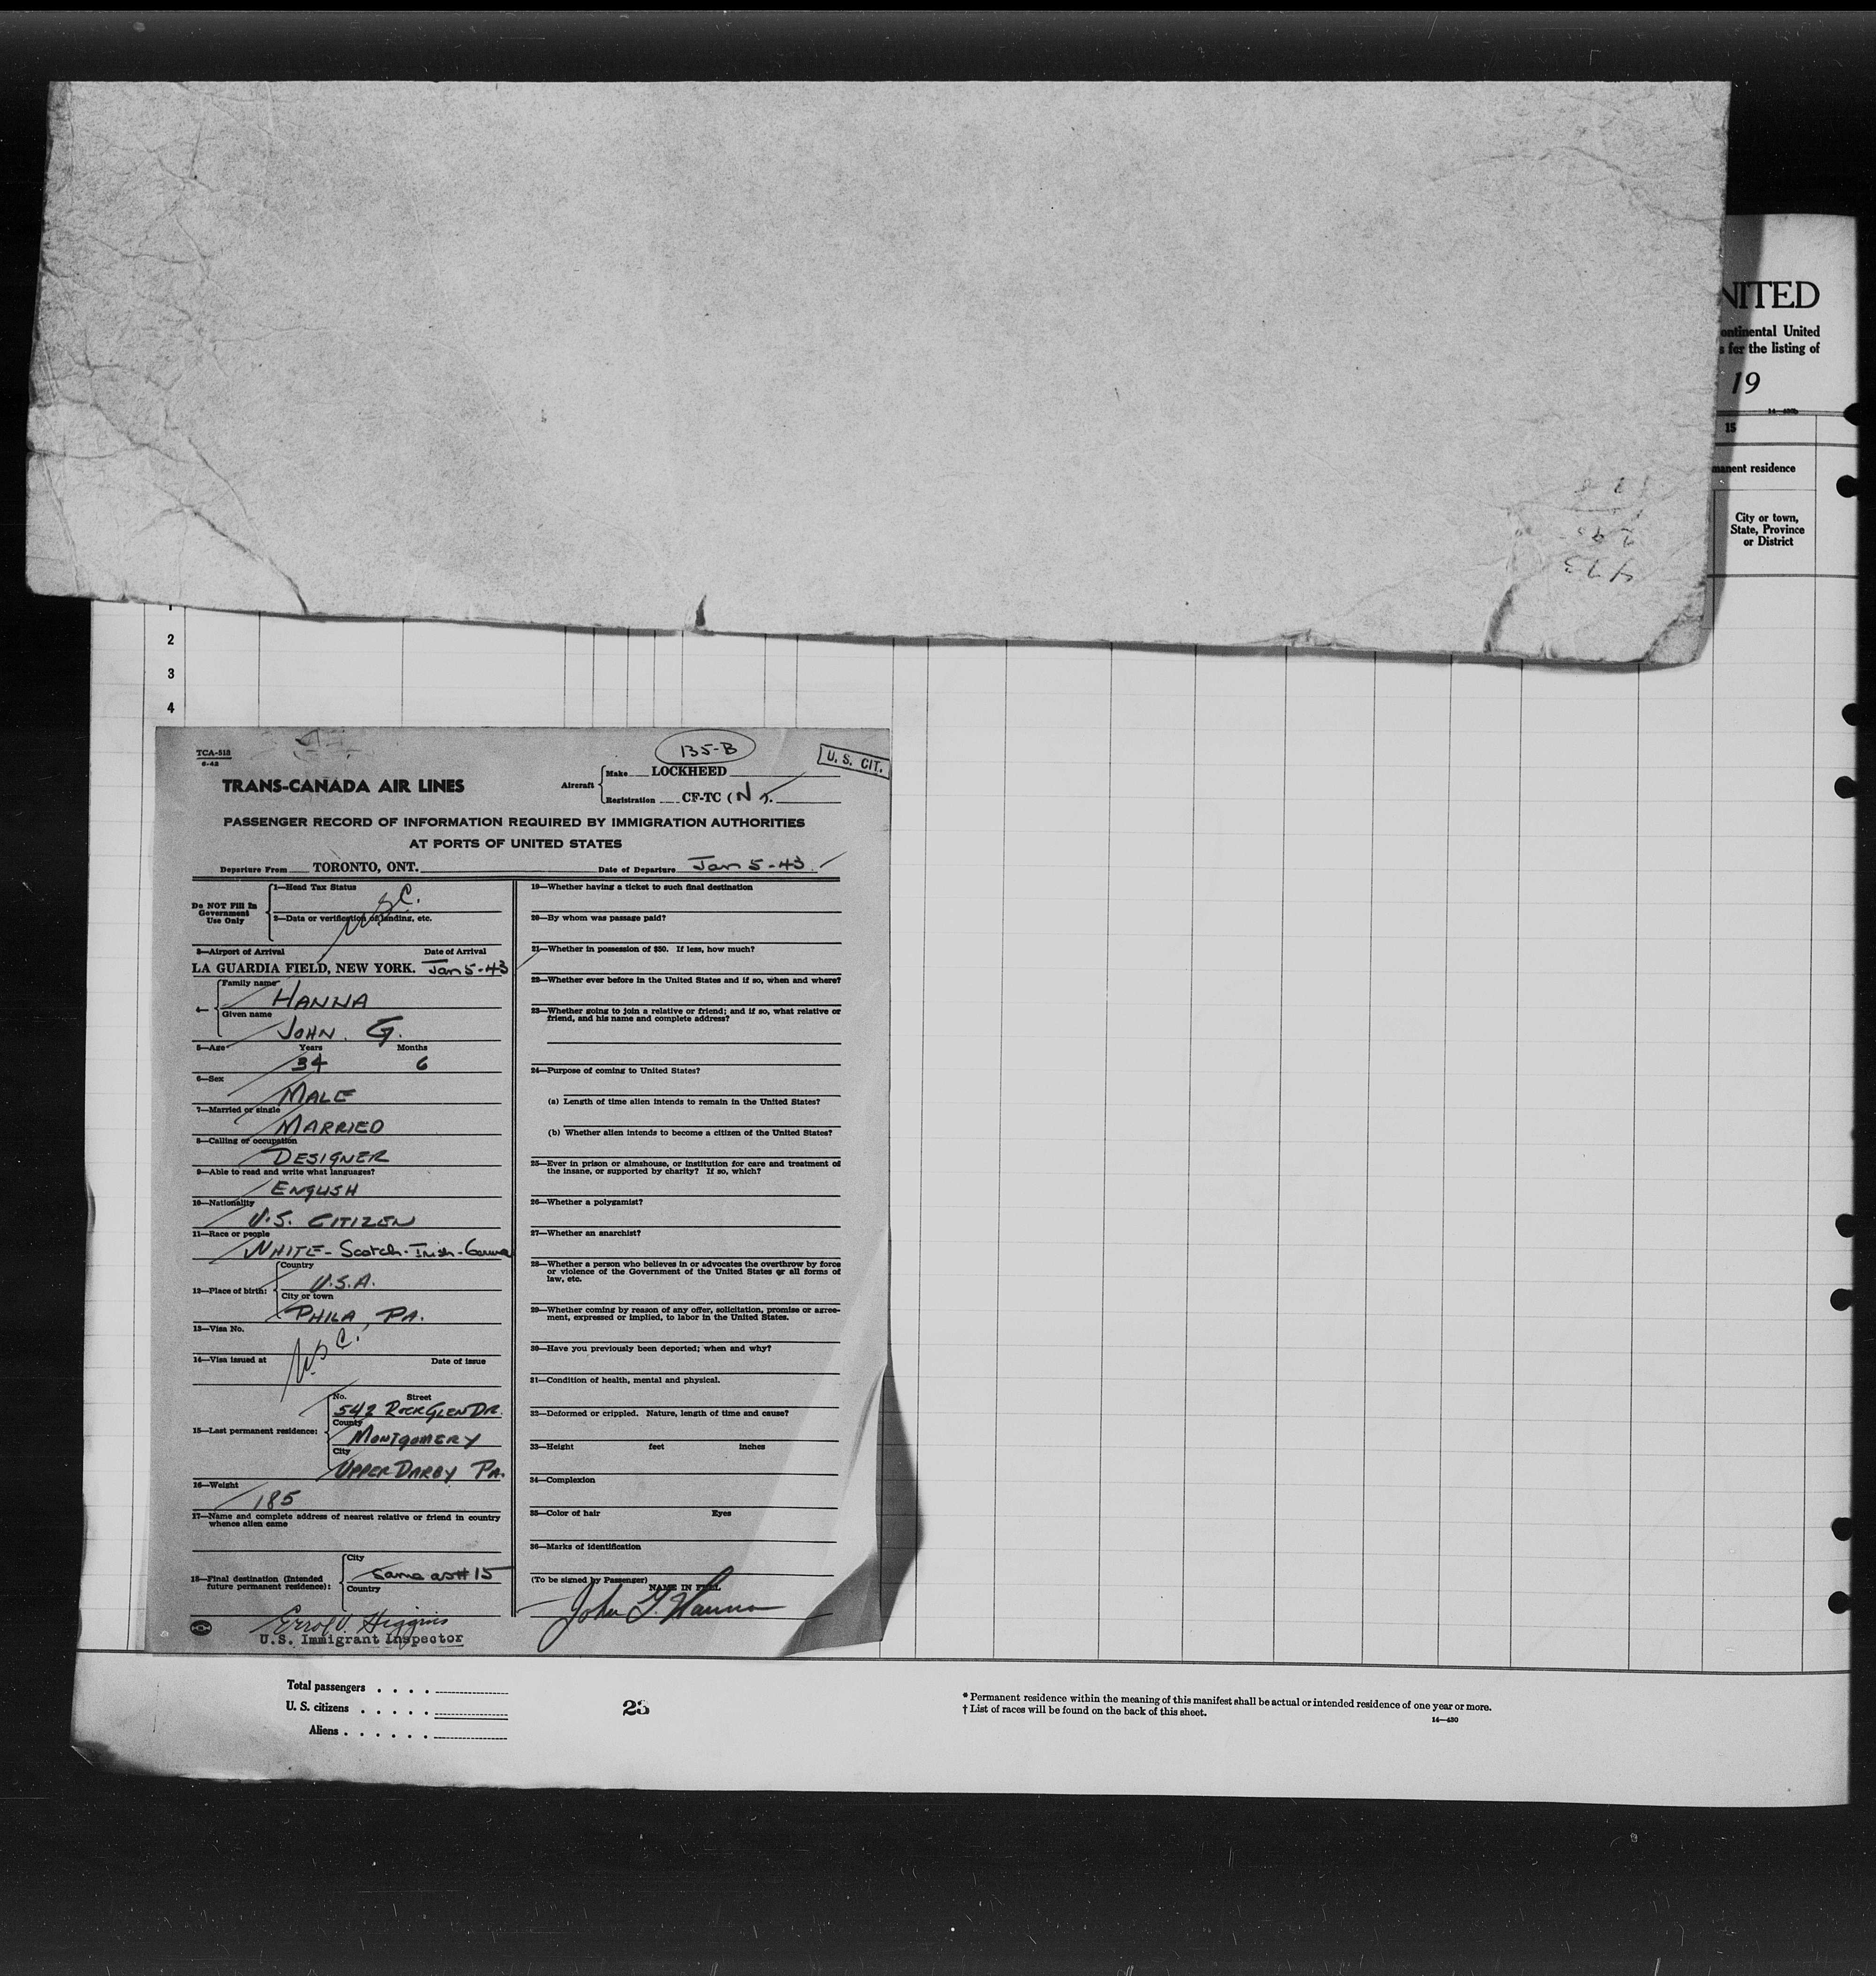 NITED
ontinental United
s for the listing of
19
15
manent residence
City or town,
State, Province
or District
2
3
4
TCA-513
6-42
135-B
U. S. CIT.
TRANS-CANADA AIR LINES
Aircraft
Make LOCKHEED
Registration CF-TC (N).
PASSENGER RECORD OF INFORMATION REQUIRED BY IMMIGRATION AUTHORITIES
AT PORTS OF UNITED STATES
Departure From TORONTO, ONT. Date of Departure Jan 5-43
Do NOT Fill In
Government
Use Only
1—Head Tax Status
USC.
2—Data or verification of landing, etc.
3—Airport of Arrival Date of Arrival
LA GUARDIA FIELD, NEW YORK. Jan 5-43
4—
Family name
HANNA
Given name
JOHN. G.
5—Age Years Months
34 6
6—Sex
MALE
7—Married or single
MARRIED
8—Calling or occupation
DESIGNER
9—Able to read and write what languages?
ENGLISH
10—Nationality
U.S. CITIZEN
11—Race or people
WHITE - Scotch-Irish-German
12—Place of birth:
Country
U.S.A.
City or town
PHILA, PA.
13—Visa No.
USC.
14—Visa issued at Date of issue
15—Last permanent residence:
No. Street
542 ROCK GLEN DR.
County
MONTGOMERY
City
UPPER DARBY PA.
16—Weight
185
17—Name and complete address of nearest relative or friend in country
whence alien came
18—Final destination (Intended
future permanent residence):
City
Same as # 15
Country
Errol V. Higgins
U.S. Immigrant Inspector
19—Whether having a ticket to such final destination
20—By whom was passage paid?
21—Whether in possession of $50. If less, how much?
22—Whether ever before in the United States and if so, when and where?
23—Whether going to join a relative or friend; and if so, what relative or
friend, and his name and complete address?
24—Purpose of coming to United States?
(a) Length of time alien intends to remain in the United States?
(b) Whether alien intends to become a citizen of the United States?
25—Ever in prison or almshouse, or institution for care and treatment of
the insane, or supported by charity? If so, which?
26—Whether a polygamist?
27—Whether an anarchist?
28—Whether a person who believes in or advocates the overthrow by force
or violence of the Government of the United States or all forms of
law, etc.
29—Whether coming by reason of any offer, solicitation, promise or agree-
ment, expressed or implied, to labor in the United States.
30—Have you previously been deported; when and why?
31—Condition of health, mental and physical.
32—Deformed or crippled. Nature, length of time and cause?
33—Height feet inches
34—Complexion
35—Color of hair Eyes
36—Marks of identification
(To be signed by Passenger) NAME IN FULL
John G. Hanna
Total passengers
U. S. citizens
Aliens
23
* Permanent residence within the meaning of this manifest shall be actual or intended residence of one year or more.
† List of races will be found on the back of this sheet.
14—430